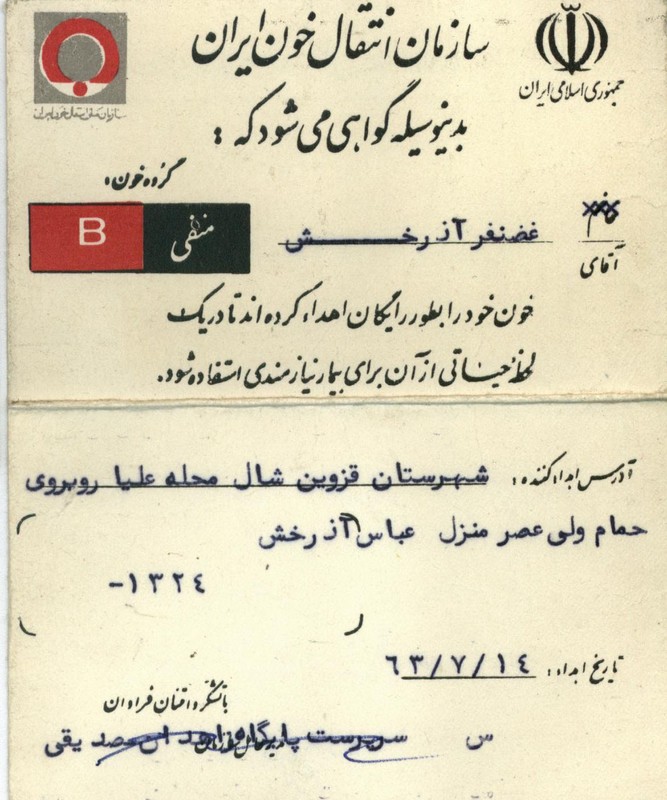 سازمان انتقال خون ایران
جمهوری اسلامی ایران
سازمان ملی انتقال خون ایران
بدینوسیله گواهی می شود که :
گروه خون:
خانم
آقای
غضنفر آذرخش
منفی B
خون خود را بطور رایگان اهداء کرده اند تا در یک
لحظه حیاتی از آن برای بیمار نیازمندی استفاده شود.
آدرس اهداء کننده: شهرستان قزوین شال محله علیا روبروی
حمام ولی عصر منزل عباس آذرخش
۱۳۲۴-
تاریخ اهداء: ۶۳/۷/۱۴
با تشکر و امتنان فراوان
س سرپرست پایگاه صدیقی